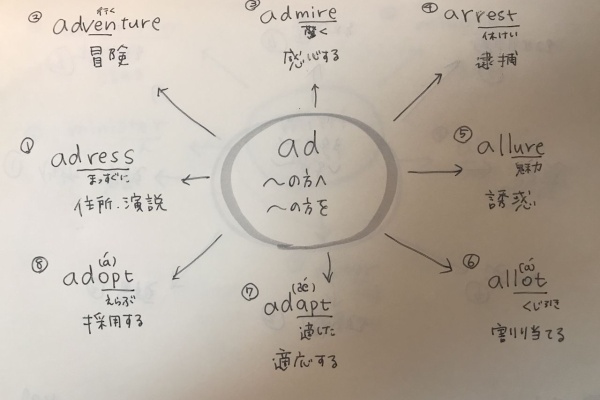 ad
〜の方へ
〜の方を
① adress
まっすぐに
住所・演説
② adventure
行く
冒険
③ admire
驚く
感心する
④ arrest
休けい
逮捕
⑤ allure
魅力
誘惑
⑥ allot
(ɑ)
くじ引き
割り当てる
⑦ adapt
(æ´)
適した
適応する
⑧ adopt
(ɑ́)
えらぶ
採用する